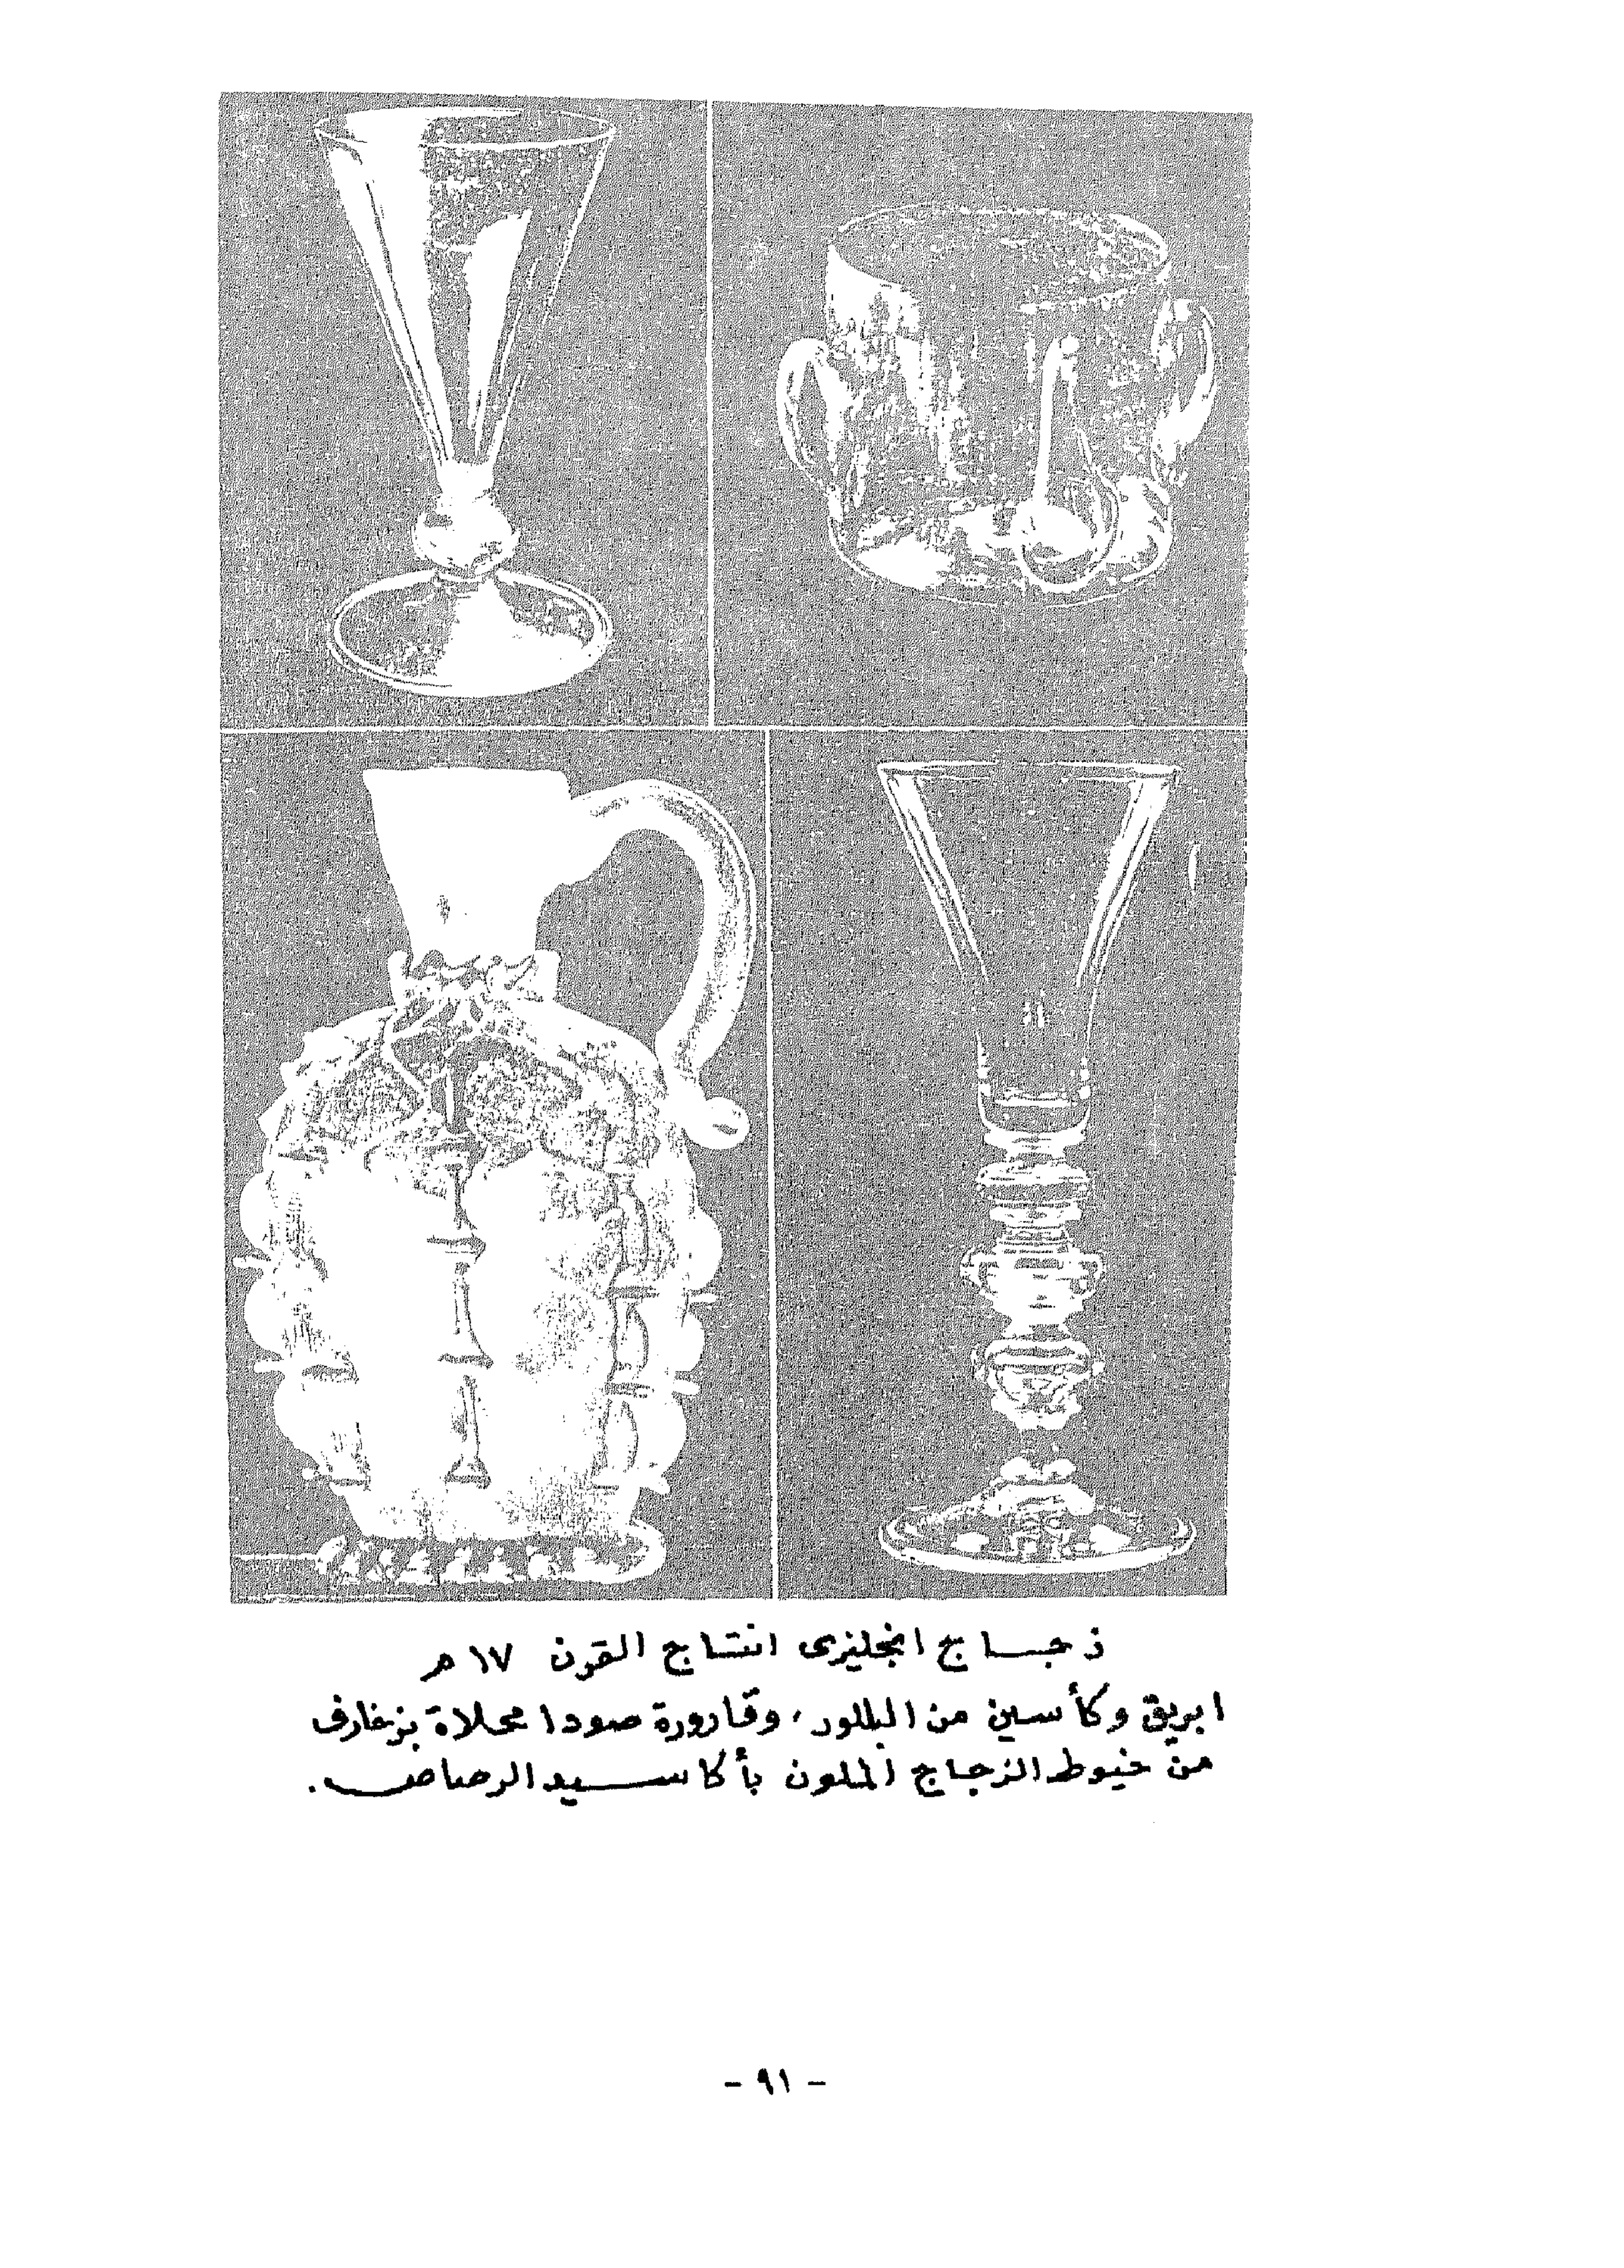 زجاج انجليزى انتاج القرن ١٧ م
ابريق وكأسين من البللور، وقارورة صودا محلاة بزخارف
من خيوط الزجاج الملون بأكاسيد الرصاص.
- ٩١ -